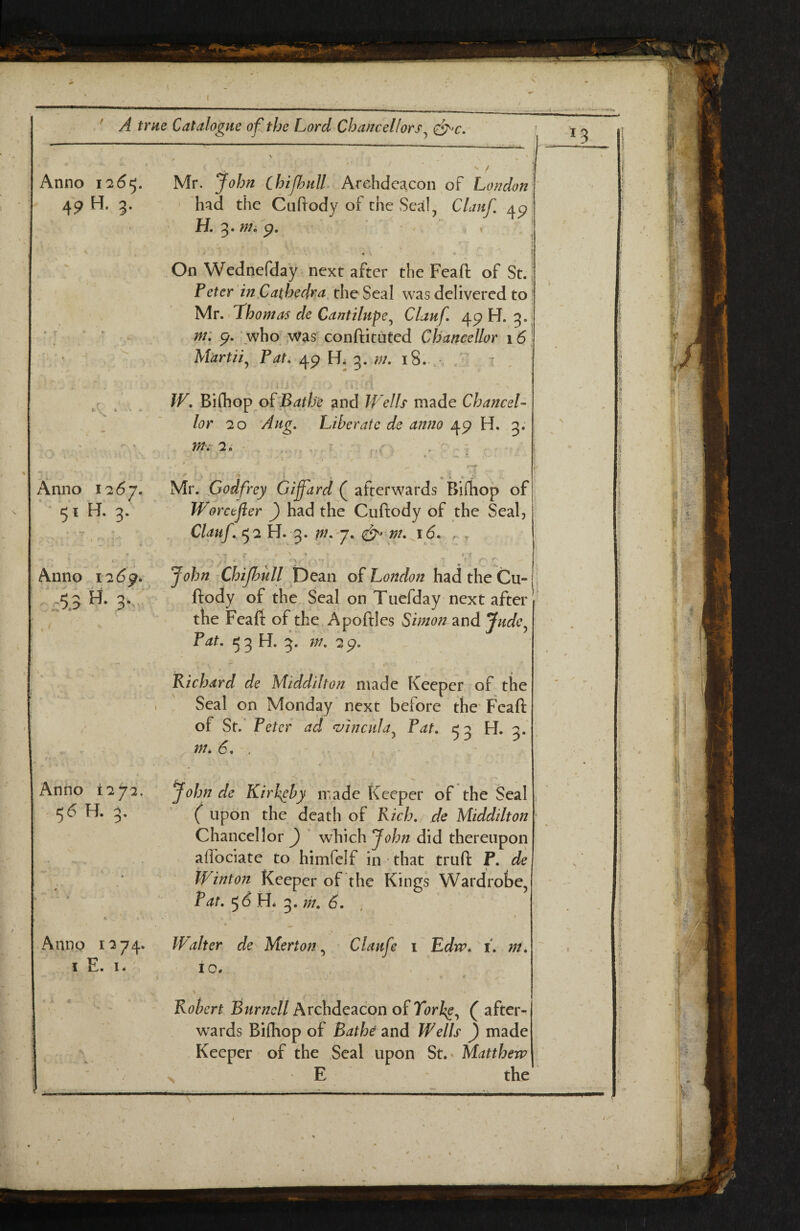 A true Catalogue of the Lord Chancellors, &c. 13
Anno 1265. Mr. John Chiſhull Archdeacon of London
49 H. 3. had the Cuſtody of the Seal, Clauſ. 49
H. 3. m. 9.
On Wedneſday next after the Feaſt of St.
Peter in Cathedra the Seal was delivered to
Mr. Thomas de Cantilupe, Clauſ. 49 H. 3.
m. 9. who was conſtituted Chancellor 16
Martii, Pat. 49 H. 3. m. 18.
W. Biſhop of Bathe and Wells made Chancel-
lor 20 Aug. Liberate de anno 49 H. 3.
m. 2.
Anno 1267. Mr. Godfrey Giffard ( afterwards Biſhop of
51 H. 3. Worceſter ) had the Cuſtody of the Seal,
Clauſ. 52 H. 3. m. 7. & m. 16.
Anno 1269. John Chiſhull Dean of London had the Cu-
53 H. 3. ſtody of the Seal on Tueſday next after
the Feaſt of the Apoſtles Simon and Jude,
Pat. 53 H. 3. m. 29.
Richard de Middilton made Keeper of the
Seal on Monday next before the Feaſt
of St. Peter ad vincula, Pat. 53 H. 3.
m. 6.
Anno 1272. John de Kirkeby made Keeper of the Seal
56 H. 3. ( upon the death of Rich. de Middilton
Chancellor ) which John did thereupon
aſſociate to himſelf in that truſt P. de
Winton Keeper of the Kings Wardrobe,
Pat. 56 H. 3. m. 6.
Anno 1274. Walter de Merton, Clauſe 1 Edw. 1. m.
1 E. 1. 10.
Robert Burnell Archdeacon of Yorke, ( after-
wards Biſhop of Bathe and Wells ) made
Keeper of the Seal upon St. Matthew
E the